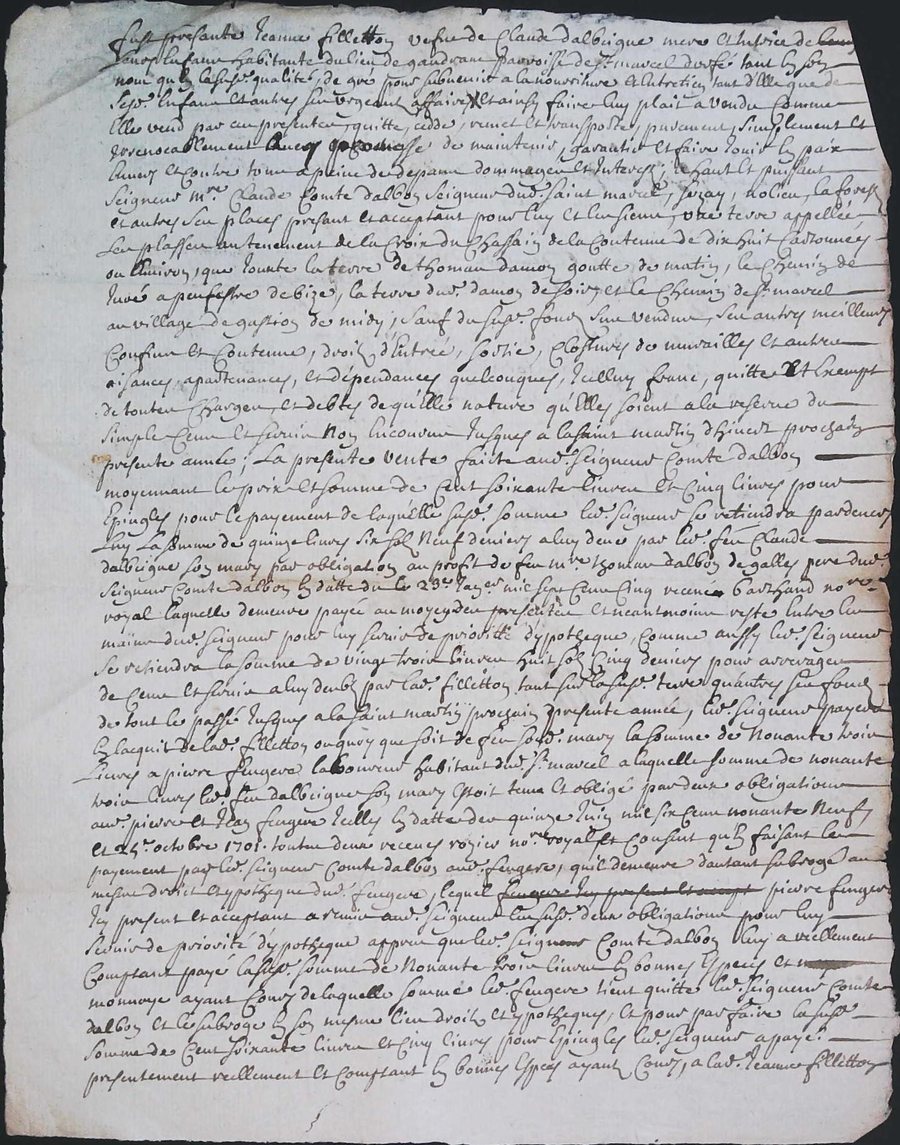 fust presante Jeanne filletton vefve de Claude dalbeigne mere et tutrice de
leurs Enfans habitante du lieu de gaudran parroisse de St marcel durfé tant En son
nom qu'En lasusd. qualité, de gré pour subvenir a la nourriture et Entretien tant d'Elle que de
sesd. Enfans et autres ses urgeant affaires et ainsy faire luy plait a vendu comme
Elle vend par ces presentes, quitte, cedde, remet et transporte, purement, simplement et
Irrevocablement avecq promesse de maintenir, garantir et faire Jouir En paix
Envers et contre tous a peine de despans dommages et Interests, a haut et puissant
Seigneur mre Claude Comte dalbon Seigneur dud. saint marcel, la forest
et autres ses places presant et acceptant pour luy et les siens, une terre appellée
Les plasses au tenement de la Croix du Chassain de la Contenue de dix huit Cartonnées
ou Environ, que Jouxte la terre de thomas damon goutte de matin, le Chemin de
a de bize, la terre dud. damon de soir et le Chemin de St. marcel
au village de de midy, sauf du susd. fonds sus vendus, ses autres meilleurs
Confins et Contenue, droits d'Entrée, sortie, Clostures de murailles et autres
aisances, apartenances, et dépendances quelconques, Iceluy franc, quitte Et Exempt
de toutes Charges et debtes de qu'elle nature qu'Elles soient a la reserve du
simple Cens et servis Non Encourus Jusques a la saint martin d'hiver prochain
presente année, La presente vente faicte aud. Seigneur Comte dalbon
moyennant le prix et somme de Cent soixante livres et Cinq livres pour
Epingles pour le payement de laquelle susd. somme led. Seigneur se retiendra pardevers
Luy La somme de quinze livres six sols Neuf deniers a luy deue par led. feu Claude
dalbeigne son mary par obligation au profit de feu mre thomas dalbon de galles pere dud.
Seigneur Comte dalbon En datte du le 23e Janer. mil sept Cens Cinq receue Barthand nore.
royal laquelle demeure payée au moyen des presentes et neantmoins reste Entre les
mains dud. Seigneur pour luy servir de priorité dypotheque, Comme aussy led. Seigneur
se retiendra la somme de vingt trois livres huit sols Cinq deniers pour arrerages
de Cens et servis a luy deubs par lad. filletton tant sur la susd. terre qu'autres ses fonds
de tout le passé Jusques a la saint martin prochain presente année, led. Seigneur payera
En lacquit de lad. filletton ou quoy que soit de feu sond. mary la somme de Nonante trois
Livres a pierre fengere laboureur habitant dud. St. marcel a laquelle somme de nonante
trois livres led. feu dalbeigne son mary Estoit tenu et obligé par deux obligations
aud. pierre et Jean fengere Icelles En datte des quinze Juin mil six Cens nonante Neuf
et 24e. octobre 1701. toutes deux receues rozier nore royal et Consent qu'En faisant le
payement par led. Seigneur Comte dalbon aud. fengere, quil demeure dautant subrogé au
mesme droict et ypotheque dud. fengere, lequel pierre fengere
Icy present et acceptant a remis aud. Seigneur les susd. deux obligations pour luy
servir de priorité dypotheque apprès que led. Seigneur Comte dalbon luy a reellement
Comptant payé lasusd. somme de Nonante trois livres En bonnes Especes et
monnoye ayant Cours de laquelle somme led. fengere tient quitte led. Seigneur Comte
dalbon et le subroge En son mesme lieu droits et ypotheques, et pour parfaire la susd.
somme de Cent soixante livres et Cinq livres pour Epingles led. Seigneur a payé
presentement reellement et Comptant En bonnes Especes ayant Cours, a lad. Jeanne filletton